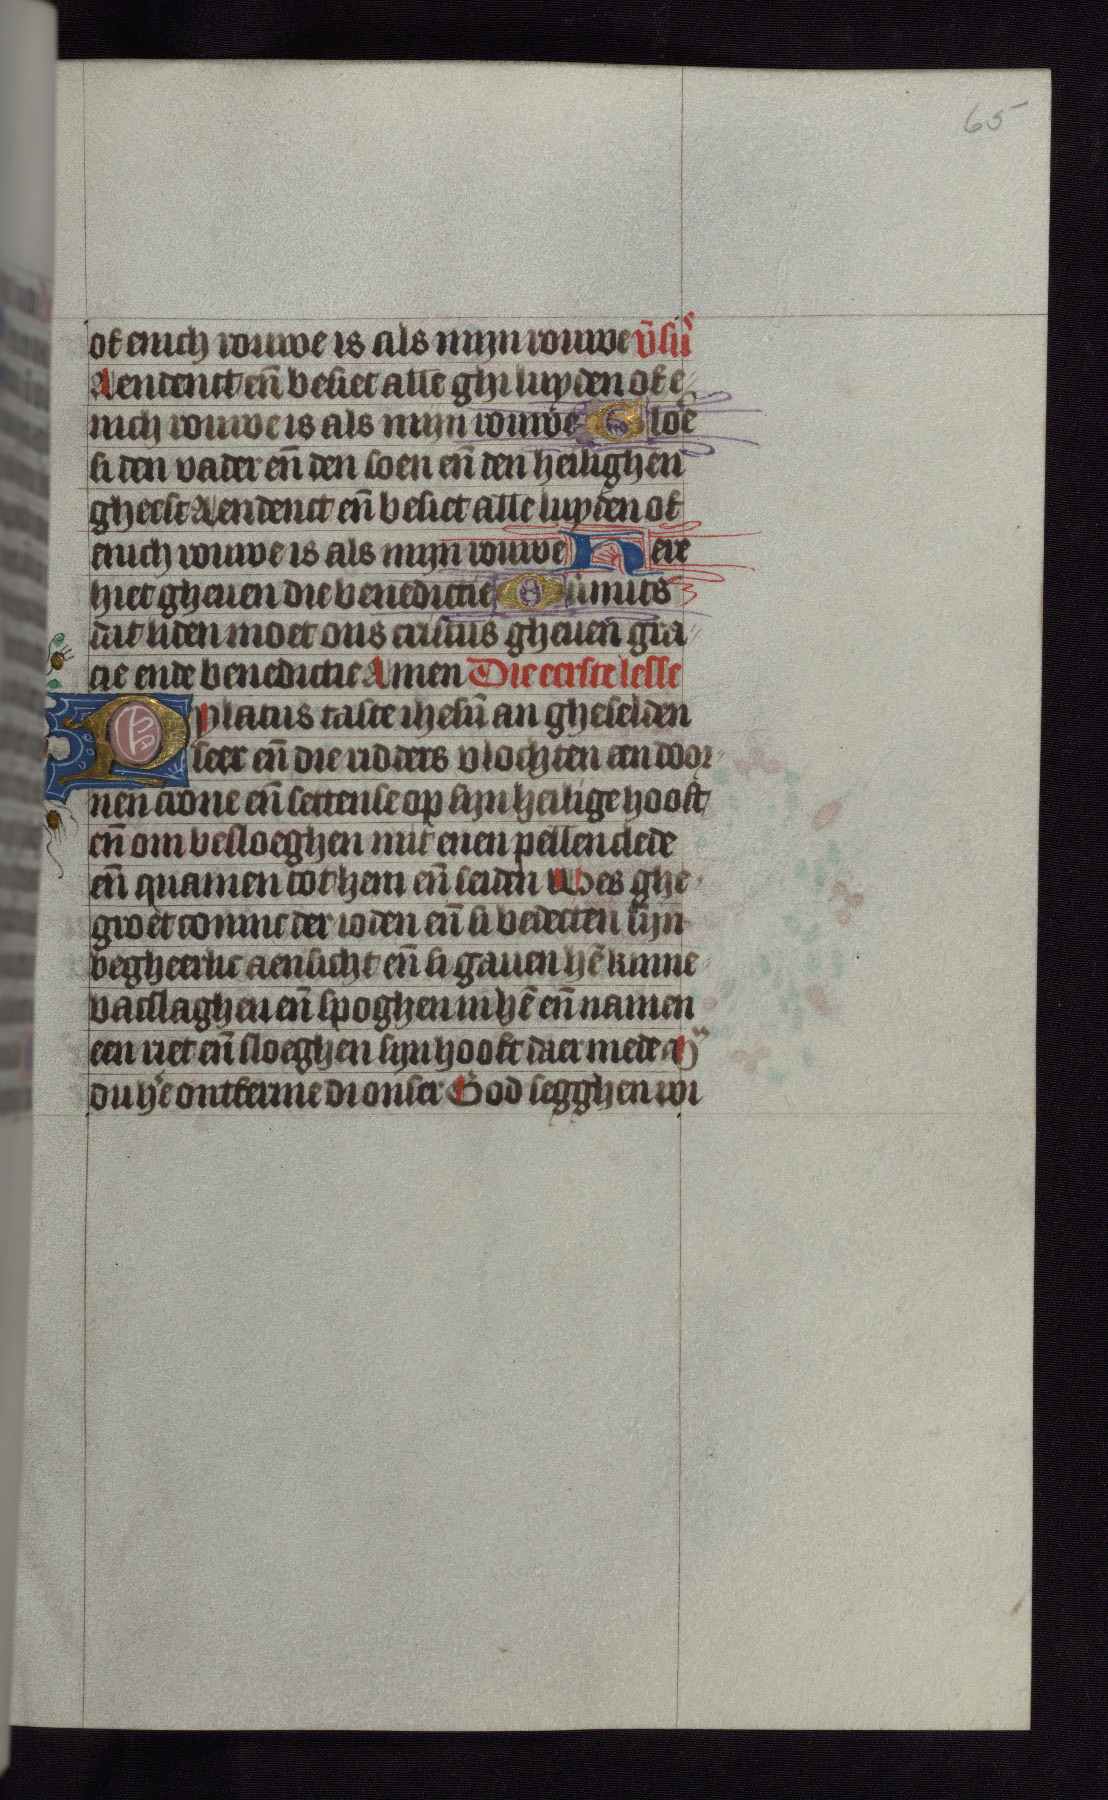 65
of enich rouwe is als mijn rouwe v̄sus
Aendenct en̄ besiet alle ghi luyden of e
nich rouwe is als mijn rouwe Gloe
si den vader en̄ den soen en̄ den heilighen
gheest Aendenct en̄ besiet alle luyden of
enich rouwe is als mijn rouwe Here
hiet gheuen die benedictie Ou̇mits
dat liden moet ons cristus gheuen gra
cie ende benedictie Amen Die eerste lesse
Pylatus taste ihesū an gheselden
seer en̄ die ridders vlochten een door
nen crone en̄ settense op sijn heilige hooft
en̄ om besloeghen mit enen pellen clede
en̄ quamen tot hem en̄ seiden Wes ghe
groet coninc der ioden en̄ si bedecten sijn
begheerlic aensicht en̄ si gauen hē kinne
bacslaghen en̄ spoghen in hē en̄ namen
een riet en̄ sloeghen sijn hooft daer mede
du he ontferme di onser God segghen wi